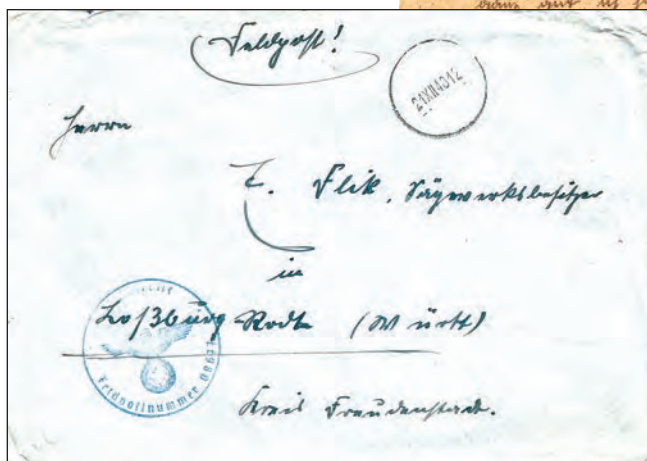 Feldpost!
21XII4012
Herrn
E. Flik, Sägewerksbesitzer
in
Loßburg-Rodt (Württ)
Feldpostnummer
Kreis Freudenstadt.